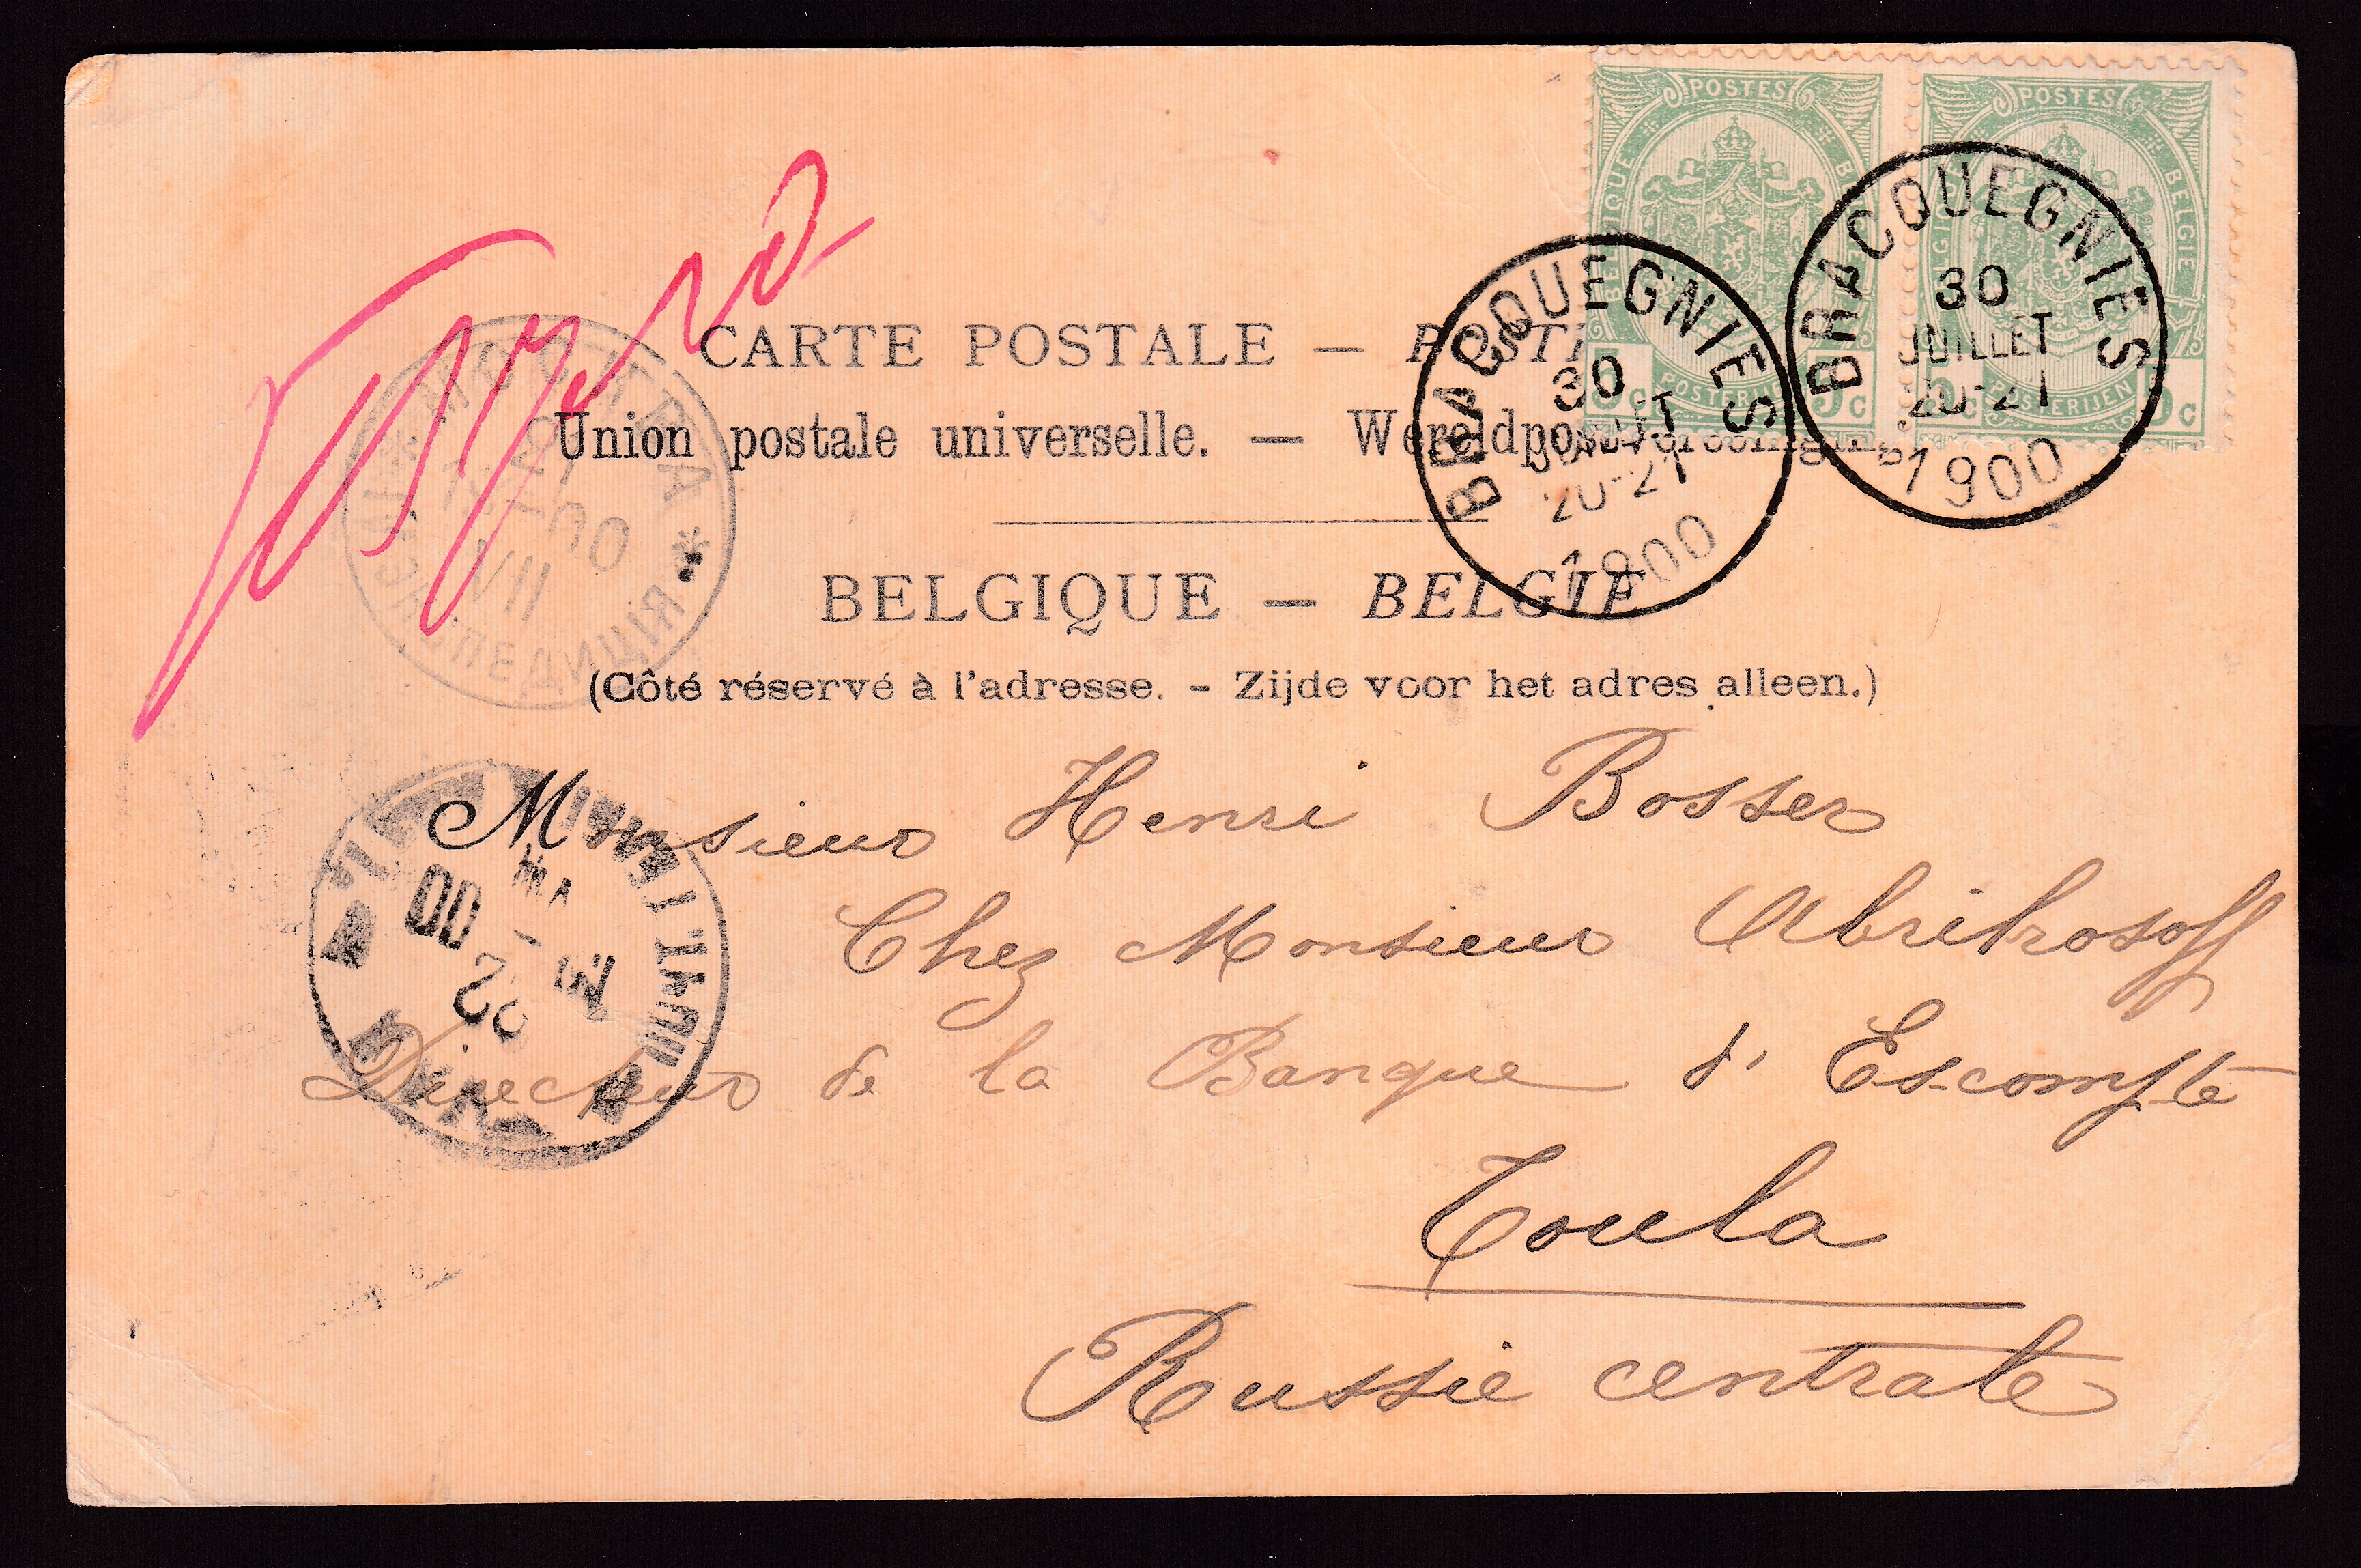 POSTES
POSTES
BELGIQUE
BELGIE
BRACQUEGNIES
30
JUILLET
20-21
1900
BRACQUEGNIES
30
20-21
1900
5c
POSTERIJEN
5c
CARTE POSTALE —
Union postale universelle. —
BELGIQUE — BELGIE
(Côté réservé à l'adresse. - Zijde voor het adres alleen.)
МОСКВА
VII
ЭКСПЕДИЦІЯ
Monsieur Henri Bosser
Chez Monsieur Abrikosoff
Directeur de la Banque d'Escompte
Toula
Russie centrale